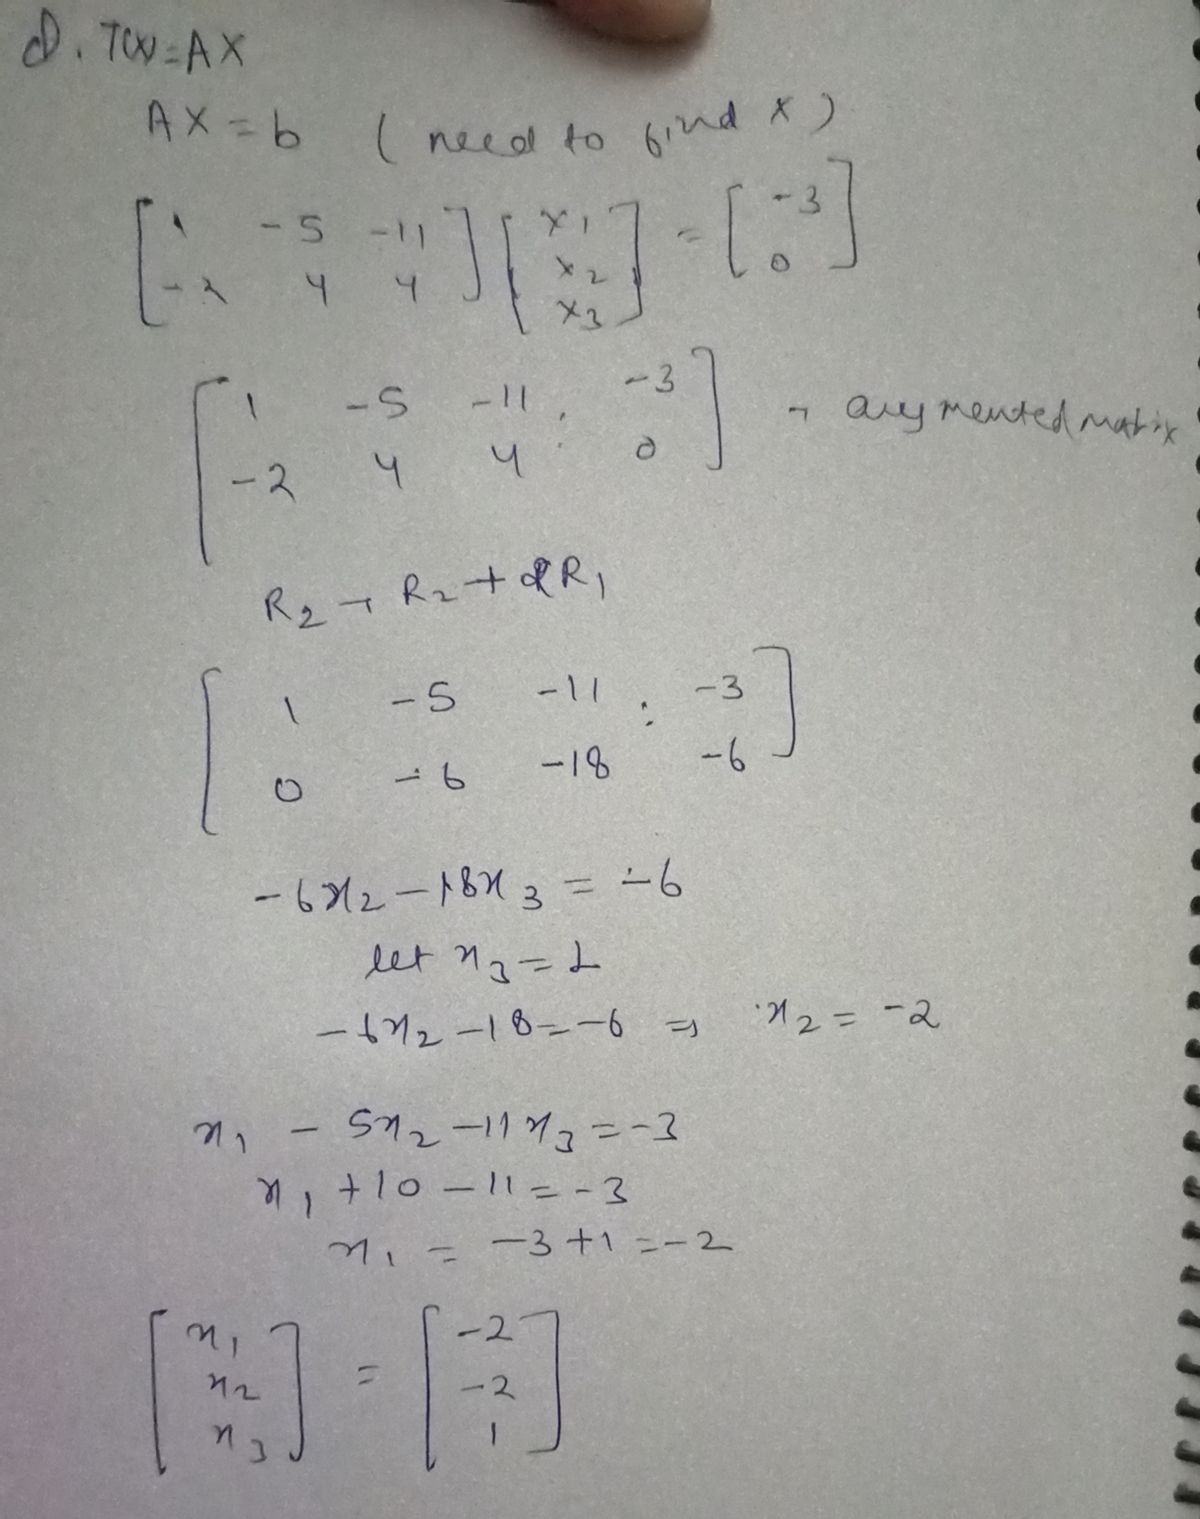 d. T(x)=AX
AX=b (need to find x)
[1 -5 -11] [x1] = [-3]
[-2 4 4] [x2] [0]
[x3]
[1 -5 -11 : -3] → augmented matrix
[-2 4 4 : 0]
R2 → R2+2R1
[1 -5 -11 : -3]
[0 -6 -18 -6]
-6x2-18x3=-6
let x3=1
-6x2-18=-6 ⇒ x2=-2
x1-5x2-11x3=-3
x1+10-11=-3
x1=-3+1=-2
[x1] = [-2]
[x2] [-2]
[x3] [1]